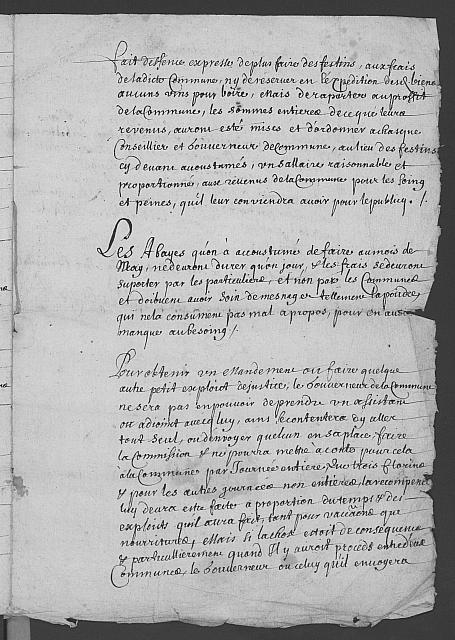 fait deffence expresse de plus faire des festins, aux frais
de ladicte Commune, ny de reserver en l'expedition des biens
aucuns vins pour boire, Mais de raporter au proffit
de la Commune, les sommes entieres de ce que leurs
revenus, auront esté mises et d'ordonner a chasque
Conseillier et Gouverneur de Commune, au lieu des festins
cy devant accoustumés, un sallaire raisonnable et
proportionné, aux revenus de la Commune pour les soing
et peines, qu'il leur conviendra avoir pour le publicq. /.
Les Abayes qu'on à accoustumé de faire au mois de
May, ne devront durer qu'on jour, & les frais se devront
suporter par les particuliers, et non par les Communes
et doibvent avoir soin de mesnager tellement la poudre,
qui ne la consument pas mal a propos, pour en avoir
manque au besoing /.
Pour obtenir un Mandement ou faire quelque
autre petit exploict de justice, le Gouverneur de la Commune
ne sera pas en pouvoir de prendre un assistant
ou adjoinct avec luy, ains se contentera d'y aller
tout seul, ou d'envoyer quelcun en sa place, faire
la Commission & ne pourra mettre à conte pour cela
à la Commune par Journée entiere, que trois florins
& pour les autres journées non entieres, la recompense
luy devra estre faicte à proportion du temps & des
exploits qu'il aura fait, tant pour vaccations que
nourriture, Mais si la chose estoit de consequence
& particullierement quand Il y auroit procéds entre deux
Communes, le Gouverneur ou celuy qu'il envoyera